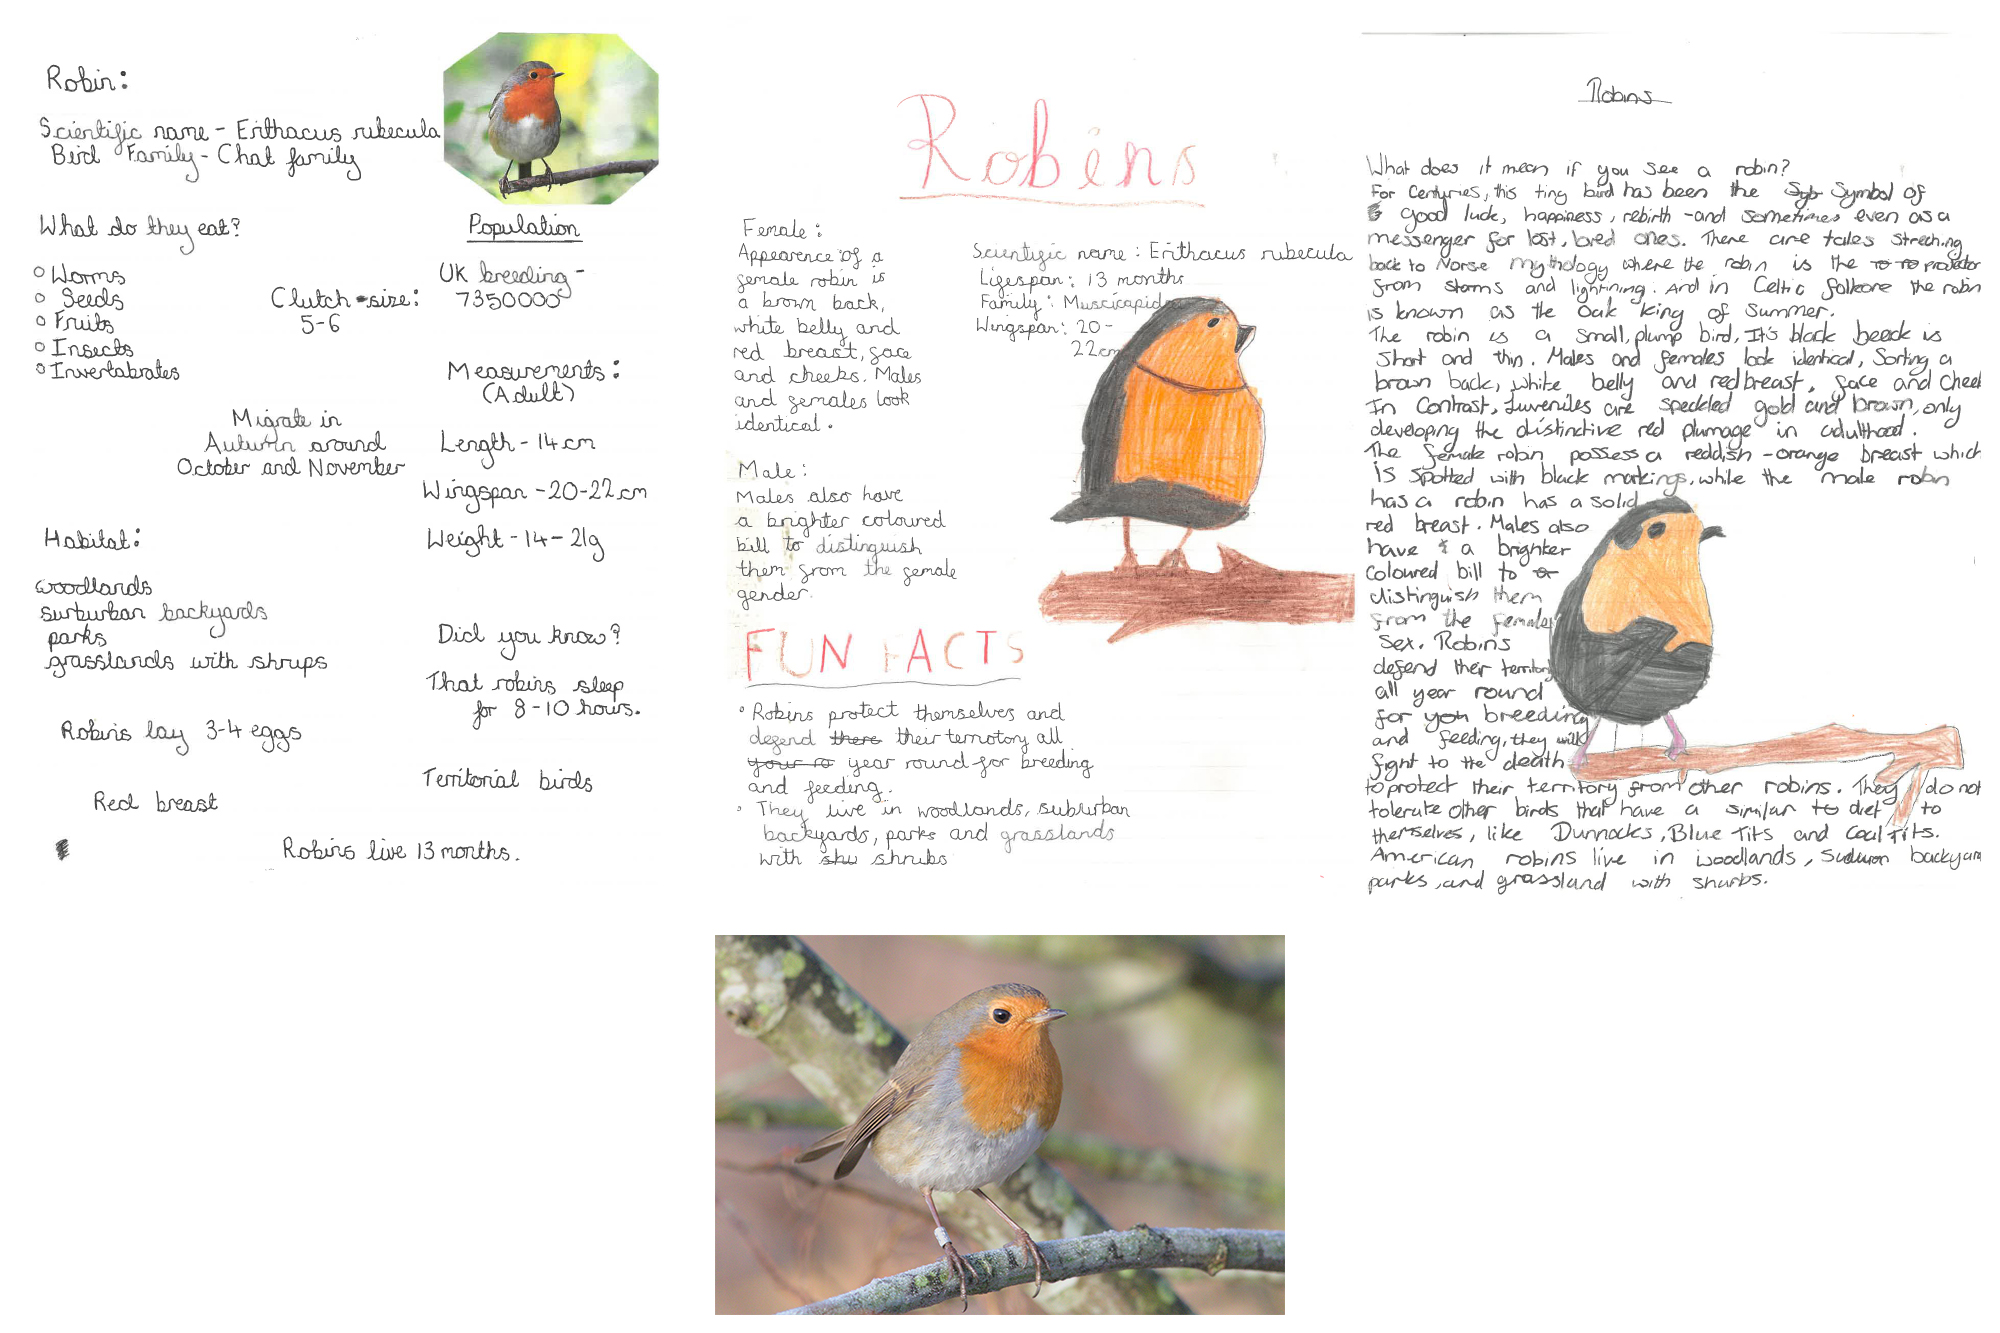 Robin:
Scientific name - Erithacus rubecula
Bird Family - Chat family
What do they eat?
Worms
Seeds
Fruits
Insects
Invertabrates
Clutch size:
5-6
Migrate in
Autumn around
October and November
Population
UK breeding -
7350000
Measurements:
(Adult)
Length - 14cm
Wingspan - 20-22cm
Weight - 14 - 21g
Habitat:
woodlands
surburban backyards
parks
grasslands with shrups
Robins lay 3-4 eggs
Red breast
Did you know?
That robins sleep
for 8-10 hours.
Territorial birds
Robins live 13 months.
Robins
Female:
Appearence of a
female robin is
a brown back,
white belly and
red breast, face
and cheeks. Males
and females look
identical.
Scientific name: Erithacus rubecula
Lifespan: 13 months
Family: Muscicapidae
Wingspan: 20-
22cm
Male:
Males also have
a brighter coloured
bill to distinguish
them from the female
gender.
FUN FACTS
Robins protect themselves and
defend there their terrotory all
your ro year round for breeding
and feeding.
They live in woodlands, suburban
backyards, parks and grasslands
with shu shrubs
Robins
What does it mean if you see a robin?
For Centuries, this tiny bird has been the Syb Symbol of
good luck, happiness, rebirth - and sometimes even as a
messenger for lost, loved ones. There are tales streching
back to Norse mythology where the robin is the to to protector
from storms and lightining. And in Celtic folkore the robin
is known as the Oak King of Summer.
The robin is a small, plump bird, It's black beeck is
short and thin. Males and females look identical, Sorting a
brown back, white belly and red breast, face and cheek
In Contrast, Juveniles are speckled gold and brown, only
developing the distinctive red plumage in adulthood.
The female robin possess a reddish - orange breast which
is spotted with black markings, while the male robin
has a robin has a solid
red breast. Males also
have a brighter
coloured bill to or
distinguish them
from the female
Sex. Robins
defend their territory
all year round
for yoh breeding
and feeding, they will
fight to the death
to protect their territory from other robins. They do not
tolerate other birds that have a similar to diet to
themselves, like Dunnocks, Blue Tits and Coal Tits.
American robins live in woodlands, backyard
parks, and grassland with shurbs.